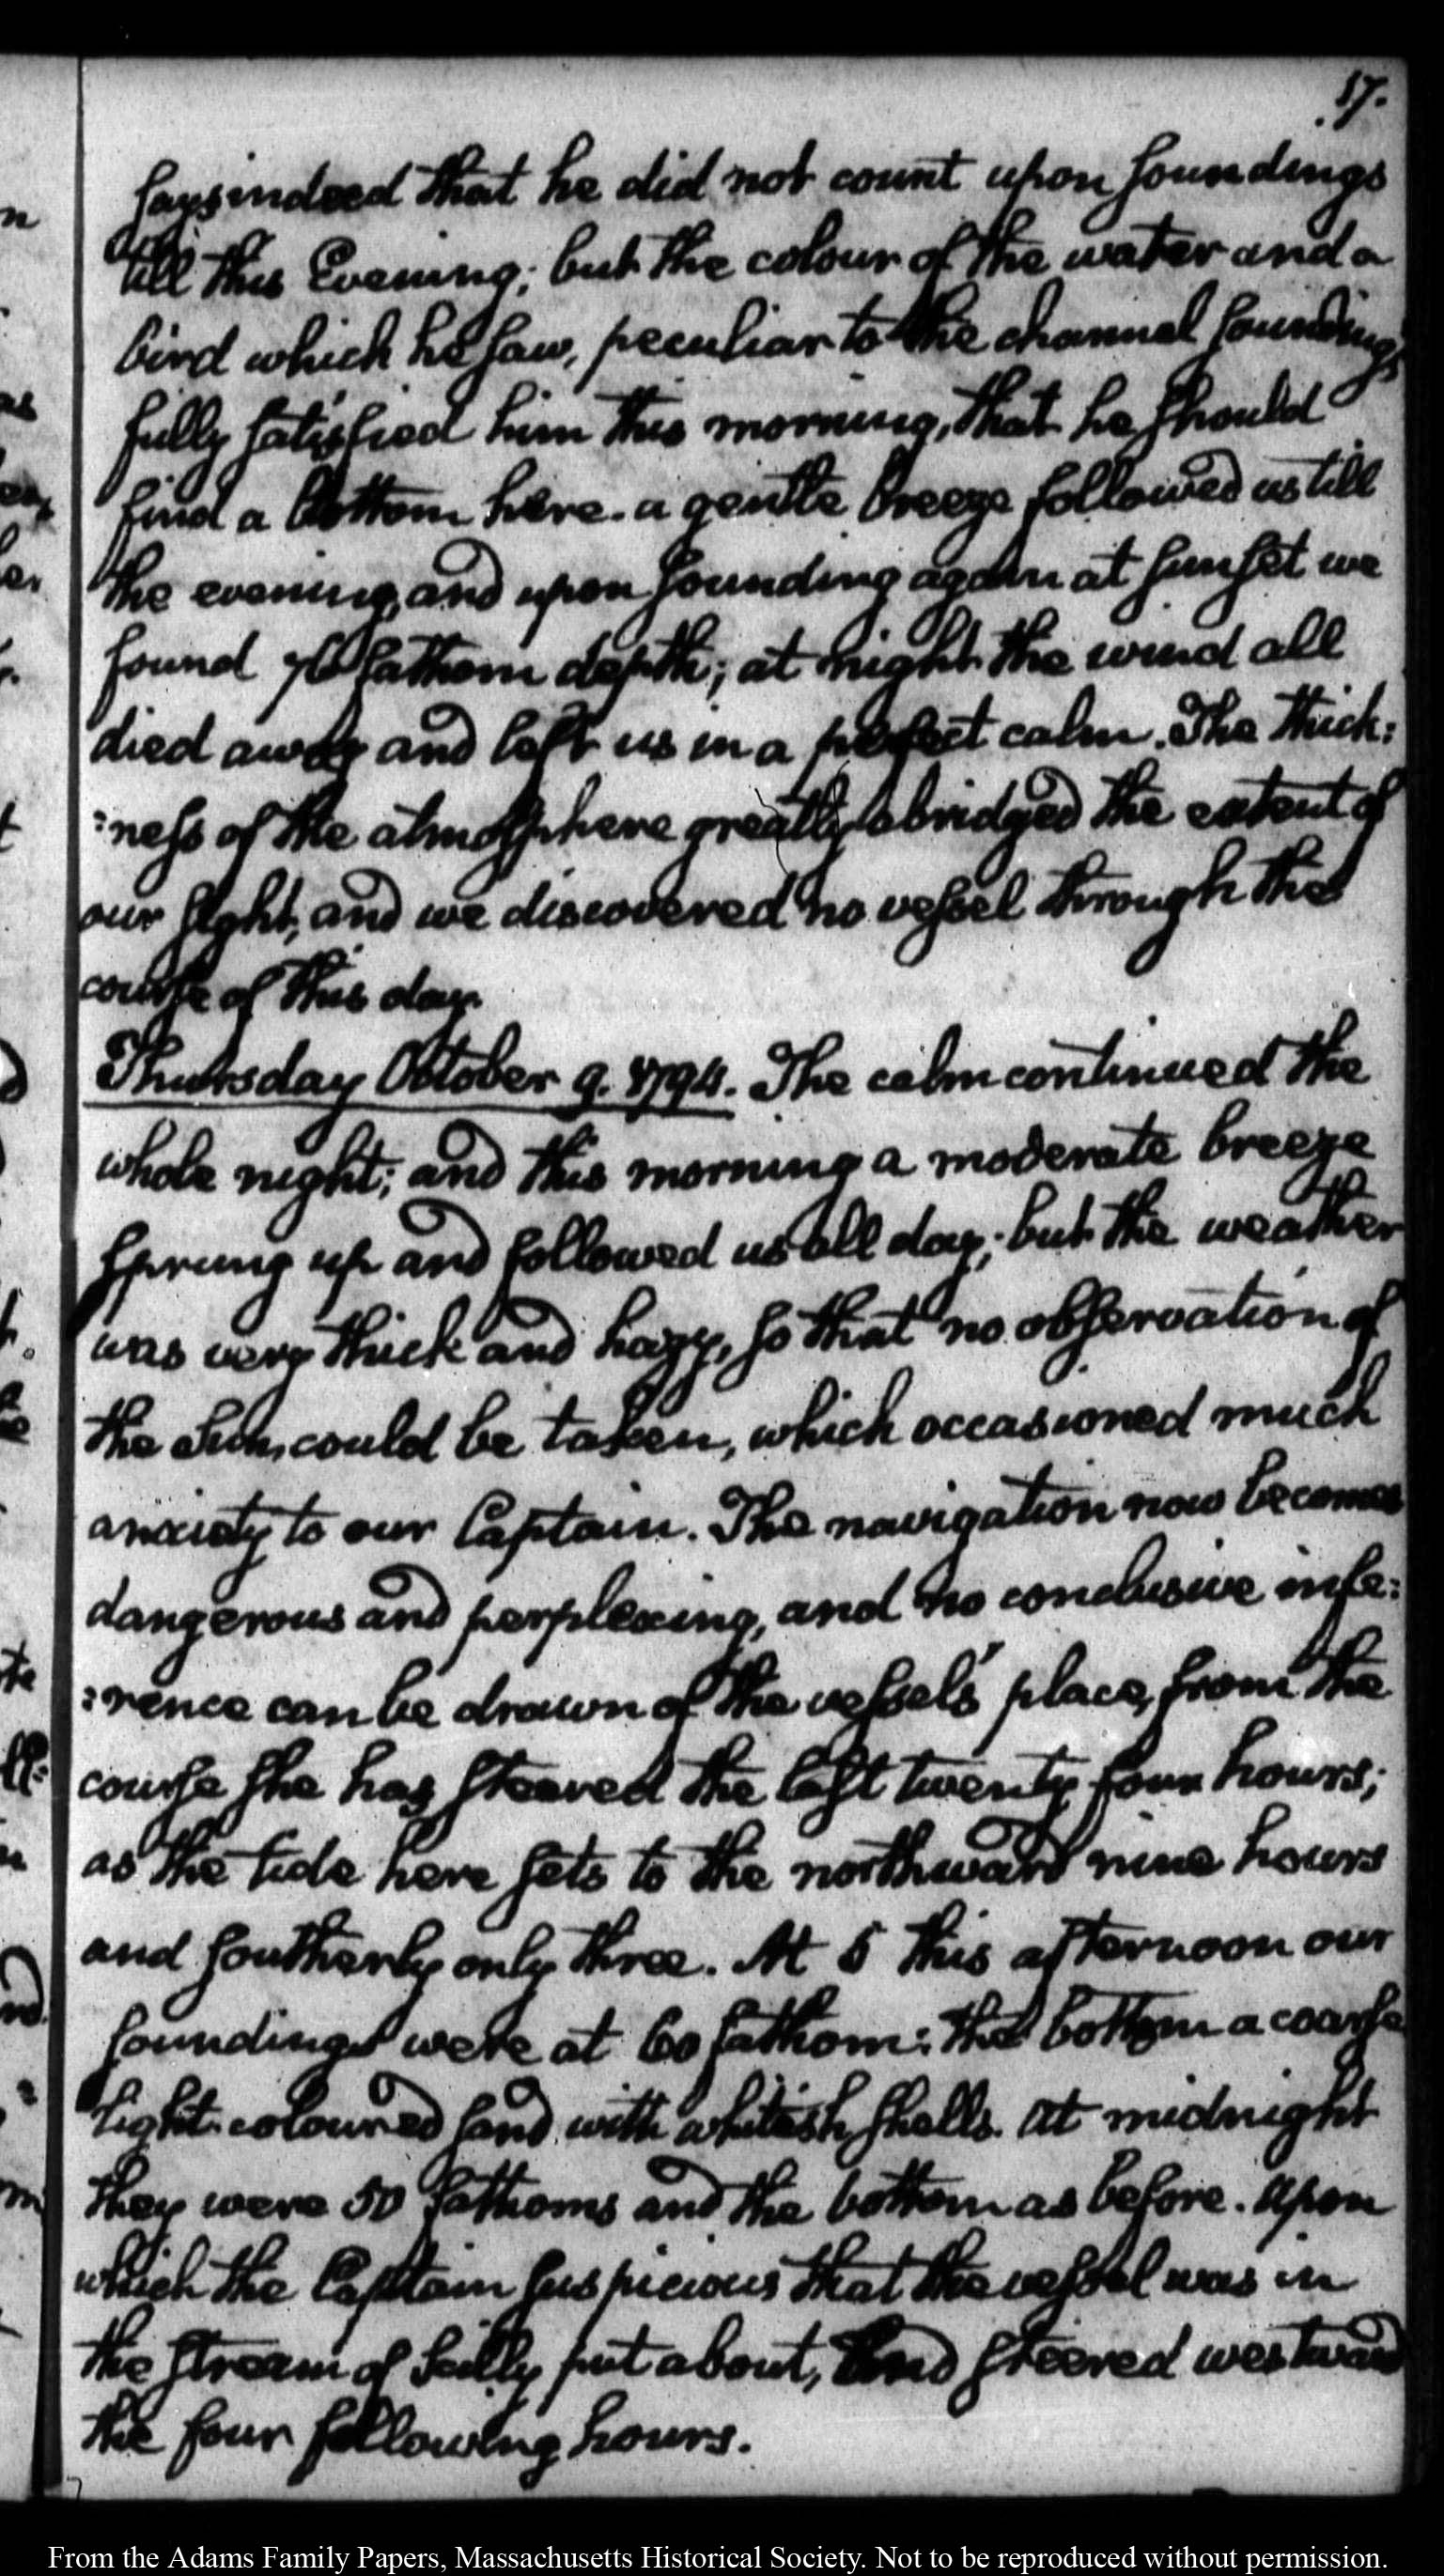 17.
says indeed that he did not count upon soundings
till this Evening; but the colour of the water and a
bird which he saw, peculiar to the channel soundings
fully satisfied him this morning, that he should
find a bottom here. a gentle breeze followed us till
the evening, and upon sounding again at sunset we
found 70 fathom depth; at night the wind all
died away and left us in a perfect calm. The thick:
:ness of the atmosphere greatly abridged the extent of
our sight, and we discovered no vessel through the
course of this day.
Thursday October 9. 1794. The calm continued the
whole night; and this morning a moderate breeze
sprung up and followed us all day; but the weather
was very thick and hazy, so that no observation of
the Sun, could be taken, which occasioned much
anxiety to our Captain. The navigation now becomes
dangerous and perplexing, and no conclusive infe:
:rence can be drawn of the vessels' place, from the
course she has steered the last twenty four hours;
as the tide here sets to the northward nine hours
and southerly only three. At 5 this afternoon our
soundings were at 60 fathom: the bottom a coarse
light coloured sand with whitish shells. At midnight
they were 50 fathoms and the bottom as before. Upon
which the Captain suspicious that the vessel was in
the stream of Scilly put about, and steered westward
the four following hours.
From the Adams Family Papers, Massachusetts Historical Society. Not to be reproduced without permission.